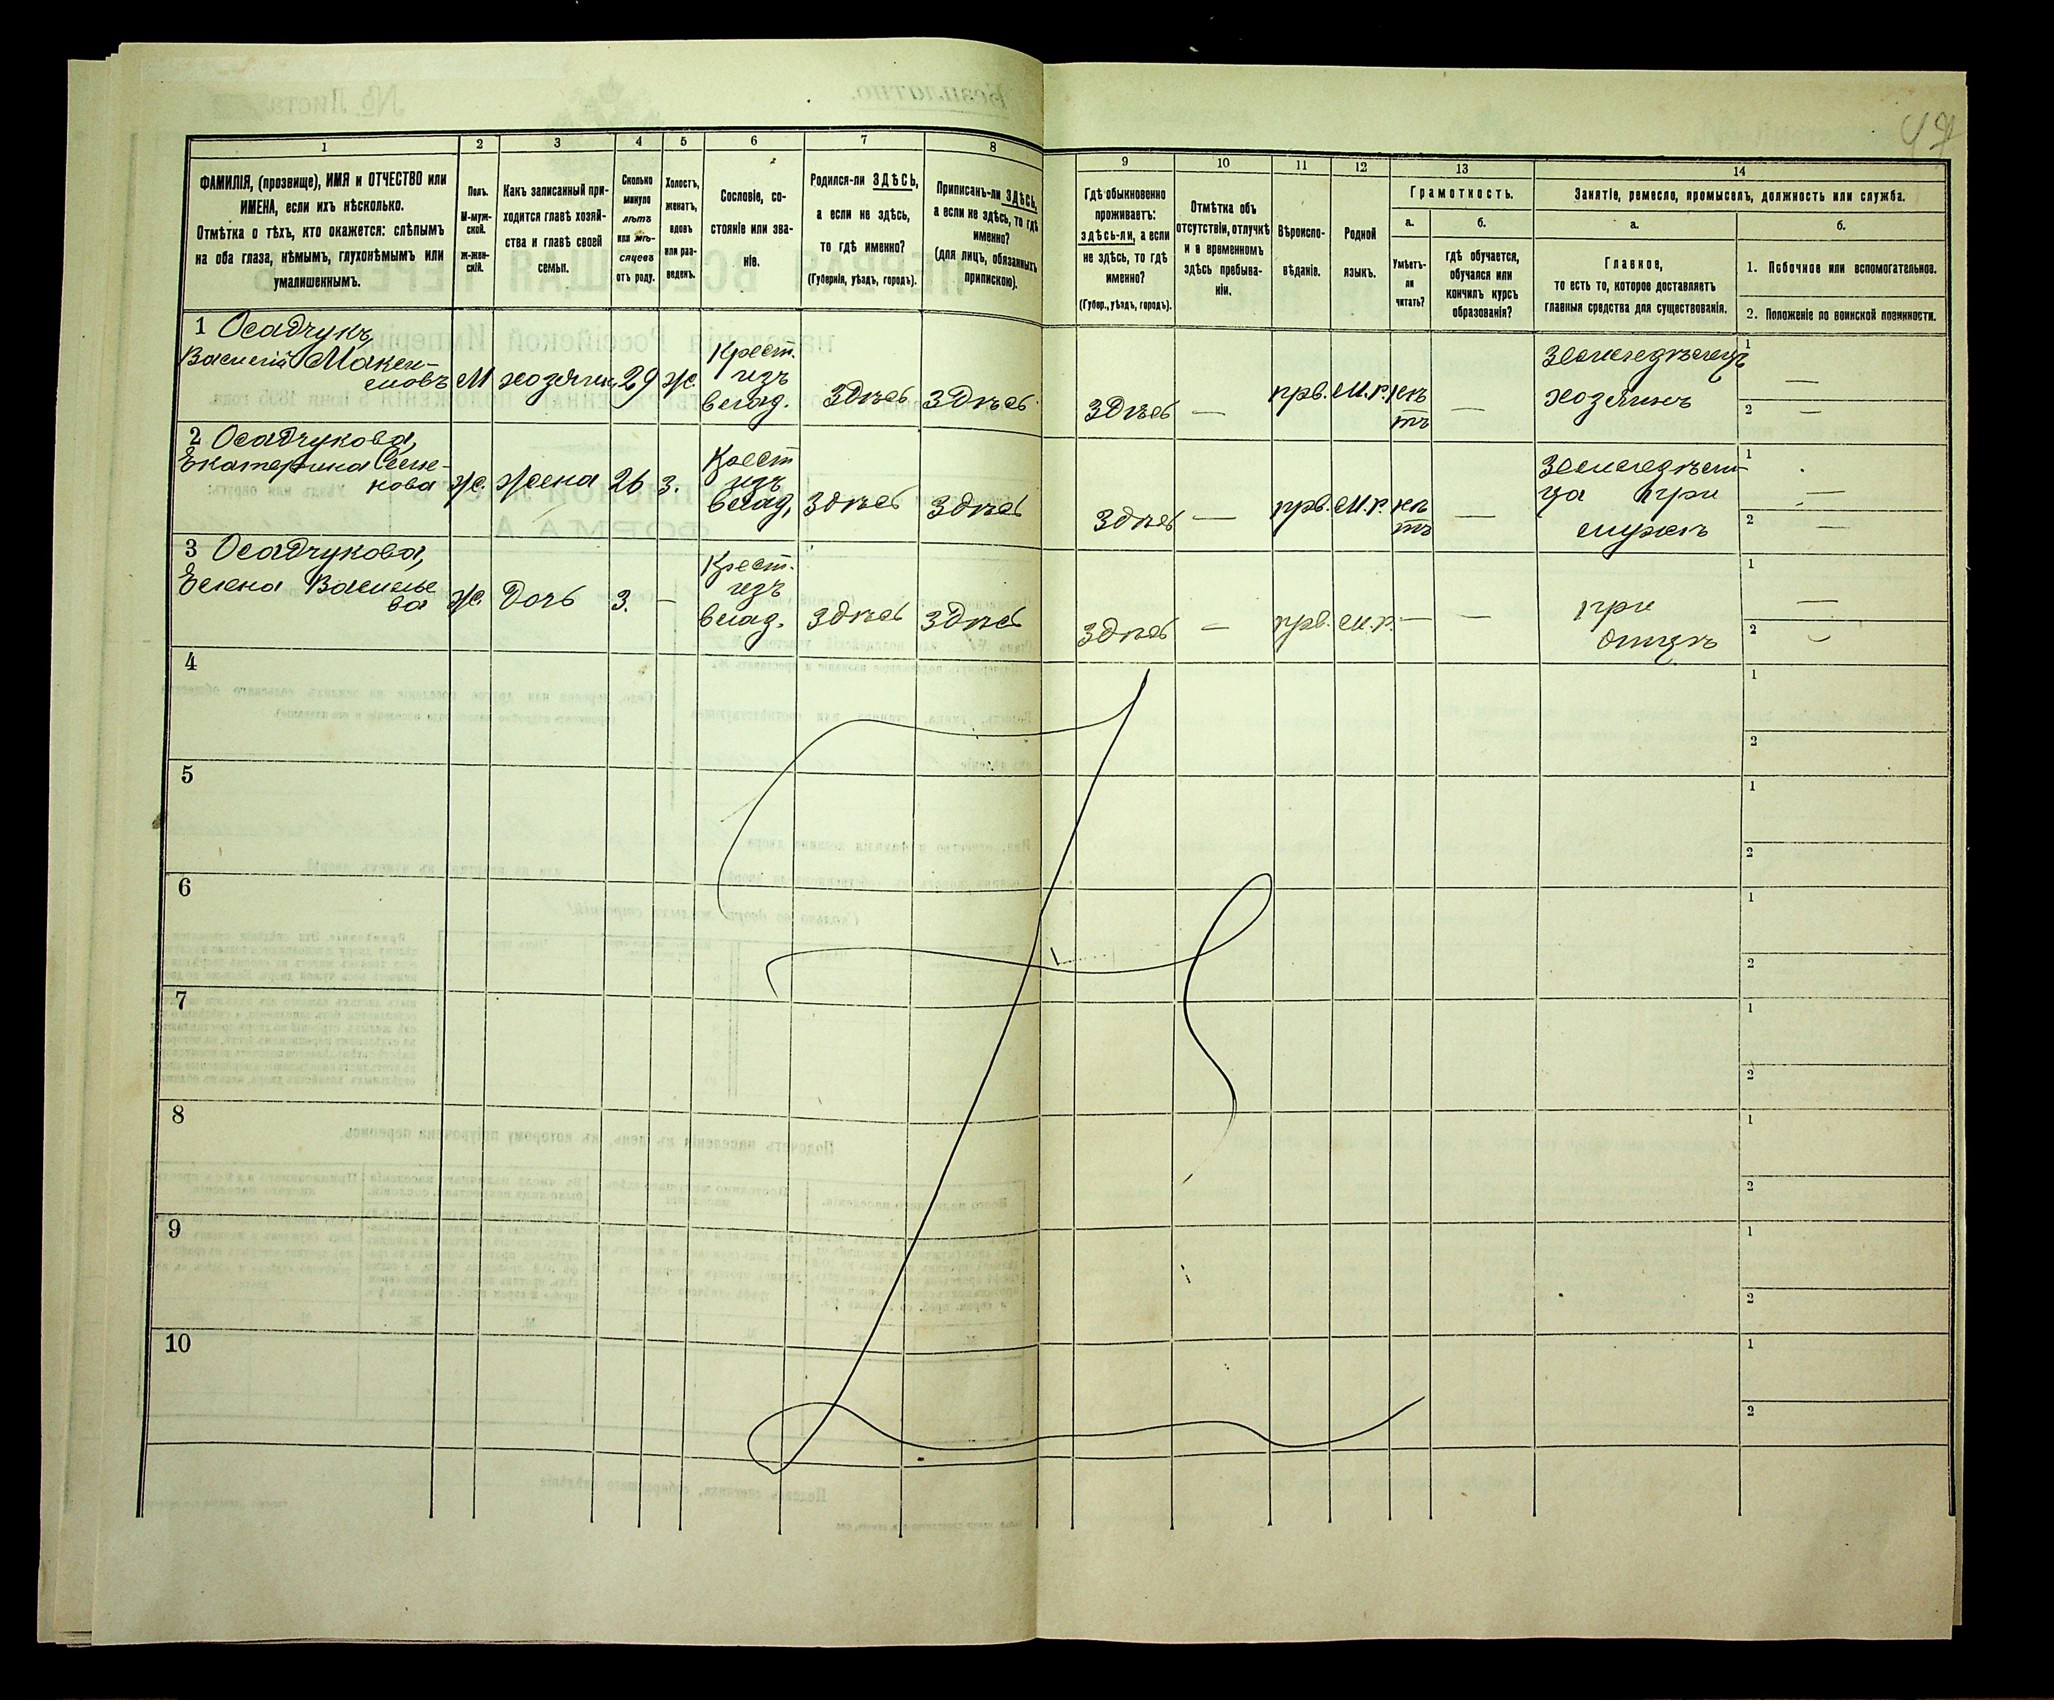 47
1
2
3
4
5
6
7
8
9
10
11
12
13
14
ФАМИЛІЯ, (прозвище), ИМЯ и ОТЧЕСТВО или
ИМЕНА, если ихъ нѣсколько.
Отмѣтка о тѣхъ, кто окажется: слѣпымъ
на оба глаза, нѣмымъ, глухонѣмымъ или
умалишеннымъ.
Полъ.
М-муж-
ской.
Ж-жен-
скій.
Какъ записанный при-
ходится главѣ хозяй-
ства и главѣ своей
семьи.
Сколько
минуло
лѣтъ
или мѣ-
сяцевъ
отъ роду.
Холостъ,
женатъ,
вдовъ
или раз-
веденъ.
Сословіе, со-
стояніе или зва-
ніе.
Родился-ли ЗДѢСЬ,
а если не здѣсь,
то гдѣ именно?
(Губернія, уѣздъ, городъ).
Приписанъ-ли ЗДѢСЬ,
а если не здѣсь, то гдѣ
именно?
(для лицъ, обязанныхъ
припискою).
Гдѣ обыкновенно
проживаетъ:
здѣсь-ли, а если
не здѣсь, то гдѣ
именно?
(Губер., уѣздъ, городъ).
Отмѣтка объ
отсутствіи, отлучкѣ
и о временномъ
здѣсь пребыва-
ніи.
Вѣроиспо-
вѣданіе.
Родной
языкъ.
Грамотность.
а.
б.
Умѣетъ-
ли
читать?
гдѣ обучается,
обучался или
кончилъ курсъ
образованія?
Занятіе, ремесло, промыселъ, должность или служба.
а.
б.
Главное,
то есть то, которое доставляетъ
главныя средства для существованія.
1. Побочное или вспомогательное.
2. Положеніе по воинской повинности.
1 Осадчукъ
Василій Макси-
мовъ
М
хозяинъ
29
ж.
Крест.
изъ
влад.
здѣсь
здѣсь
здѣсь
—
прв.
м.р.
нѣ
тъ
—
Земледѣлецъ
хозяинъ
1
—
2
—
2 Осадчукова,
Екатерина Семе-
нова
ж.
жена
26
з.
Крест
изъ
влад,
здѣсь
здѣсь
здѣсь
—
прв.
м.р.
нѣ
тъ
—
Земледѣли-
ца при
мужѣ
1
—
2
—
3 Осадчукова,
Елена Василье
ва
ж.
дочь
3.
—
Крест.
изъ
влад.
здѣсь
здѣсь
здѣсь
—
прв.
м.р.
—
—
при
отцѣ
1
—
2
—
4
1
2
5
1
2
6
1
2
7
1
2
8
1
2
9
1
2
10
1
2